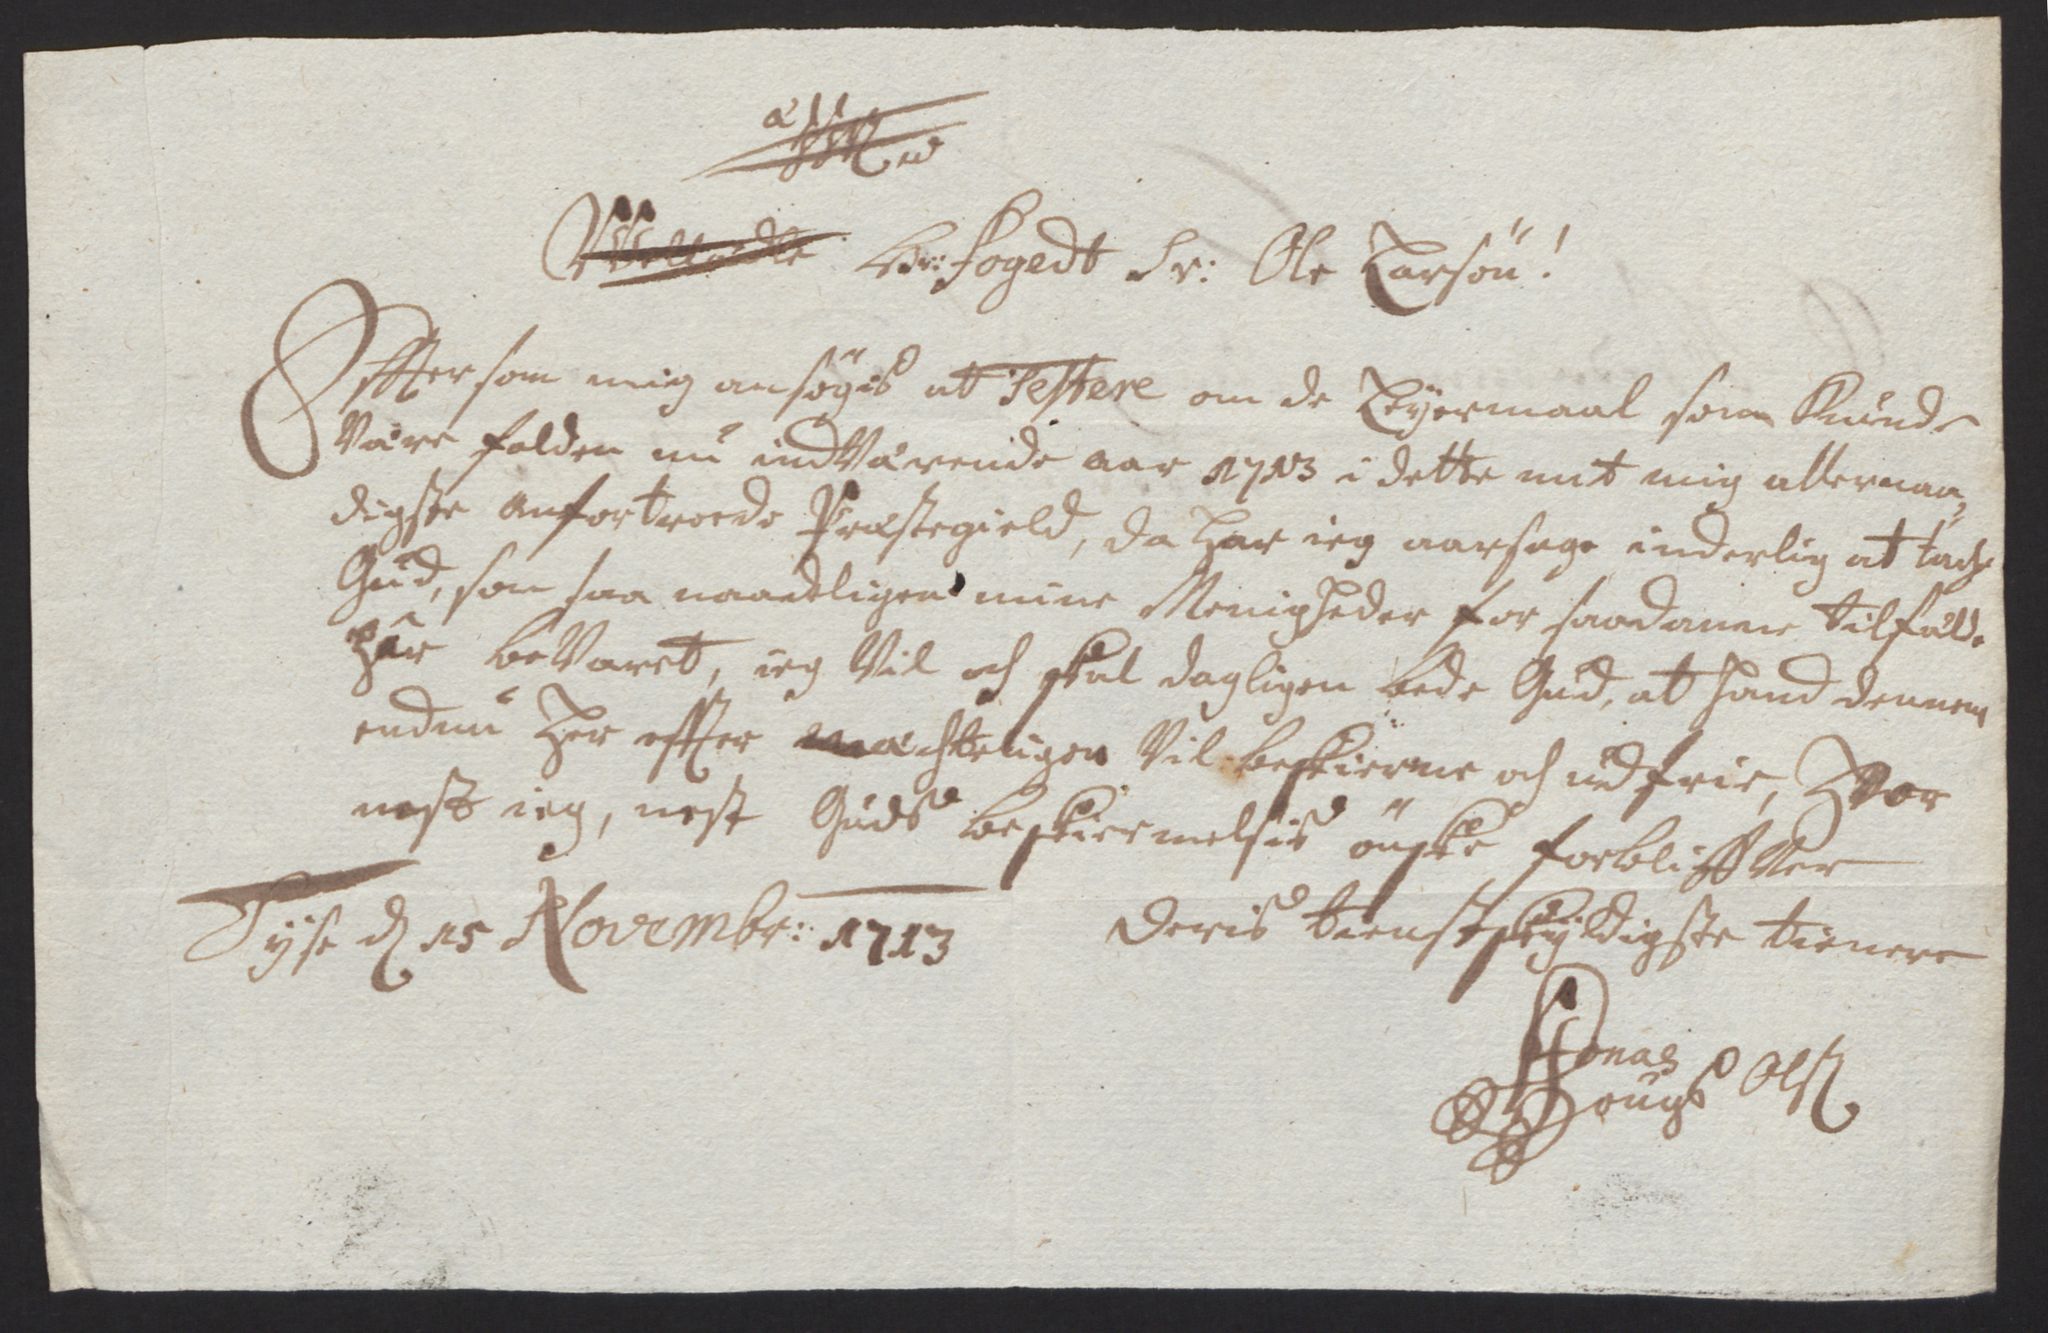 Welædle Hr: Fogedt Sr: Ole Larsön!
Effter som mig ansögis at Testere om de Leyermaal som Kunde
Være falden nu indVærende aar 1713 i dette mit mig allernaa,
digste Anfortroede Præstegield, da har ieg aarsage inderlig at tache
Gud, som saa naadeligen mine Menigheder for saadanne tilfælde
har beVaret, ieg Vil och skal dagligen bede Gud, at hand dennem
endnu her effter mächteligen Vil beskierme och udfrie, Hvor
nest ieg, nest Guds beskiermelsis önske forbliffVer
Tyse d 15 Novembr: 1713 Deris tienstskyldigste tienere
Jonas
Hougs Ols